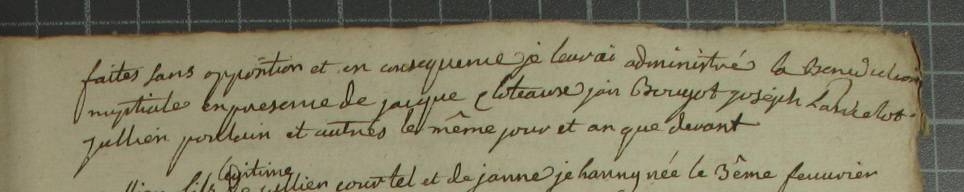 faites sans opposition et en consequence je leurai administré la Benediction
nuptiale en presence de jacque Coteause jan Bougot joseph Lancelot
jullien poulain et autres le même jour et an que devant
legitime
fils de jullien courtel et de janne jehanny née le 3ème feuvrier